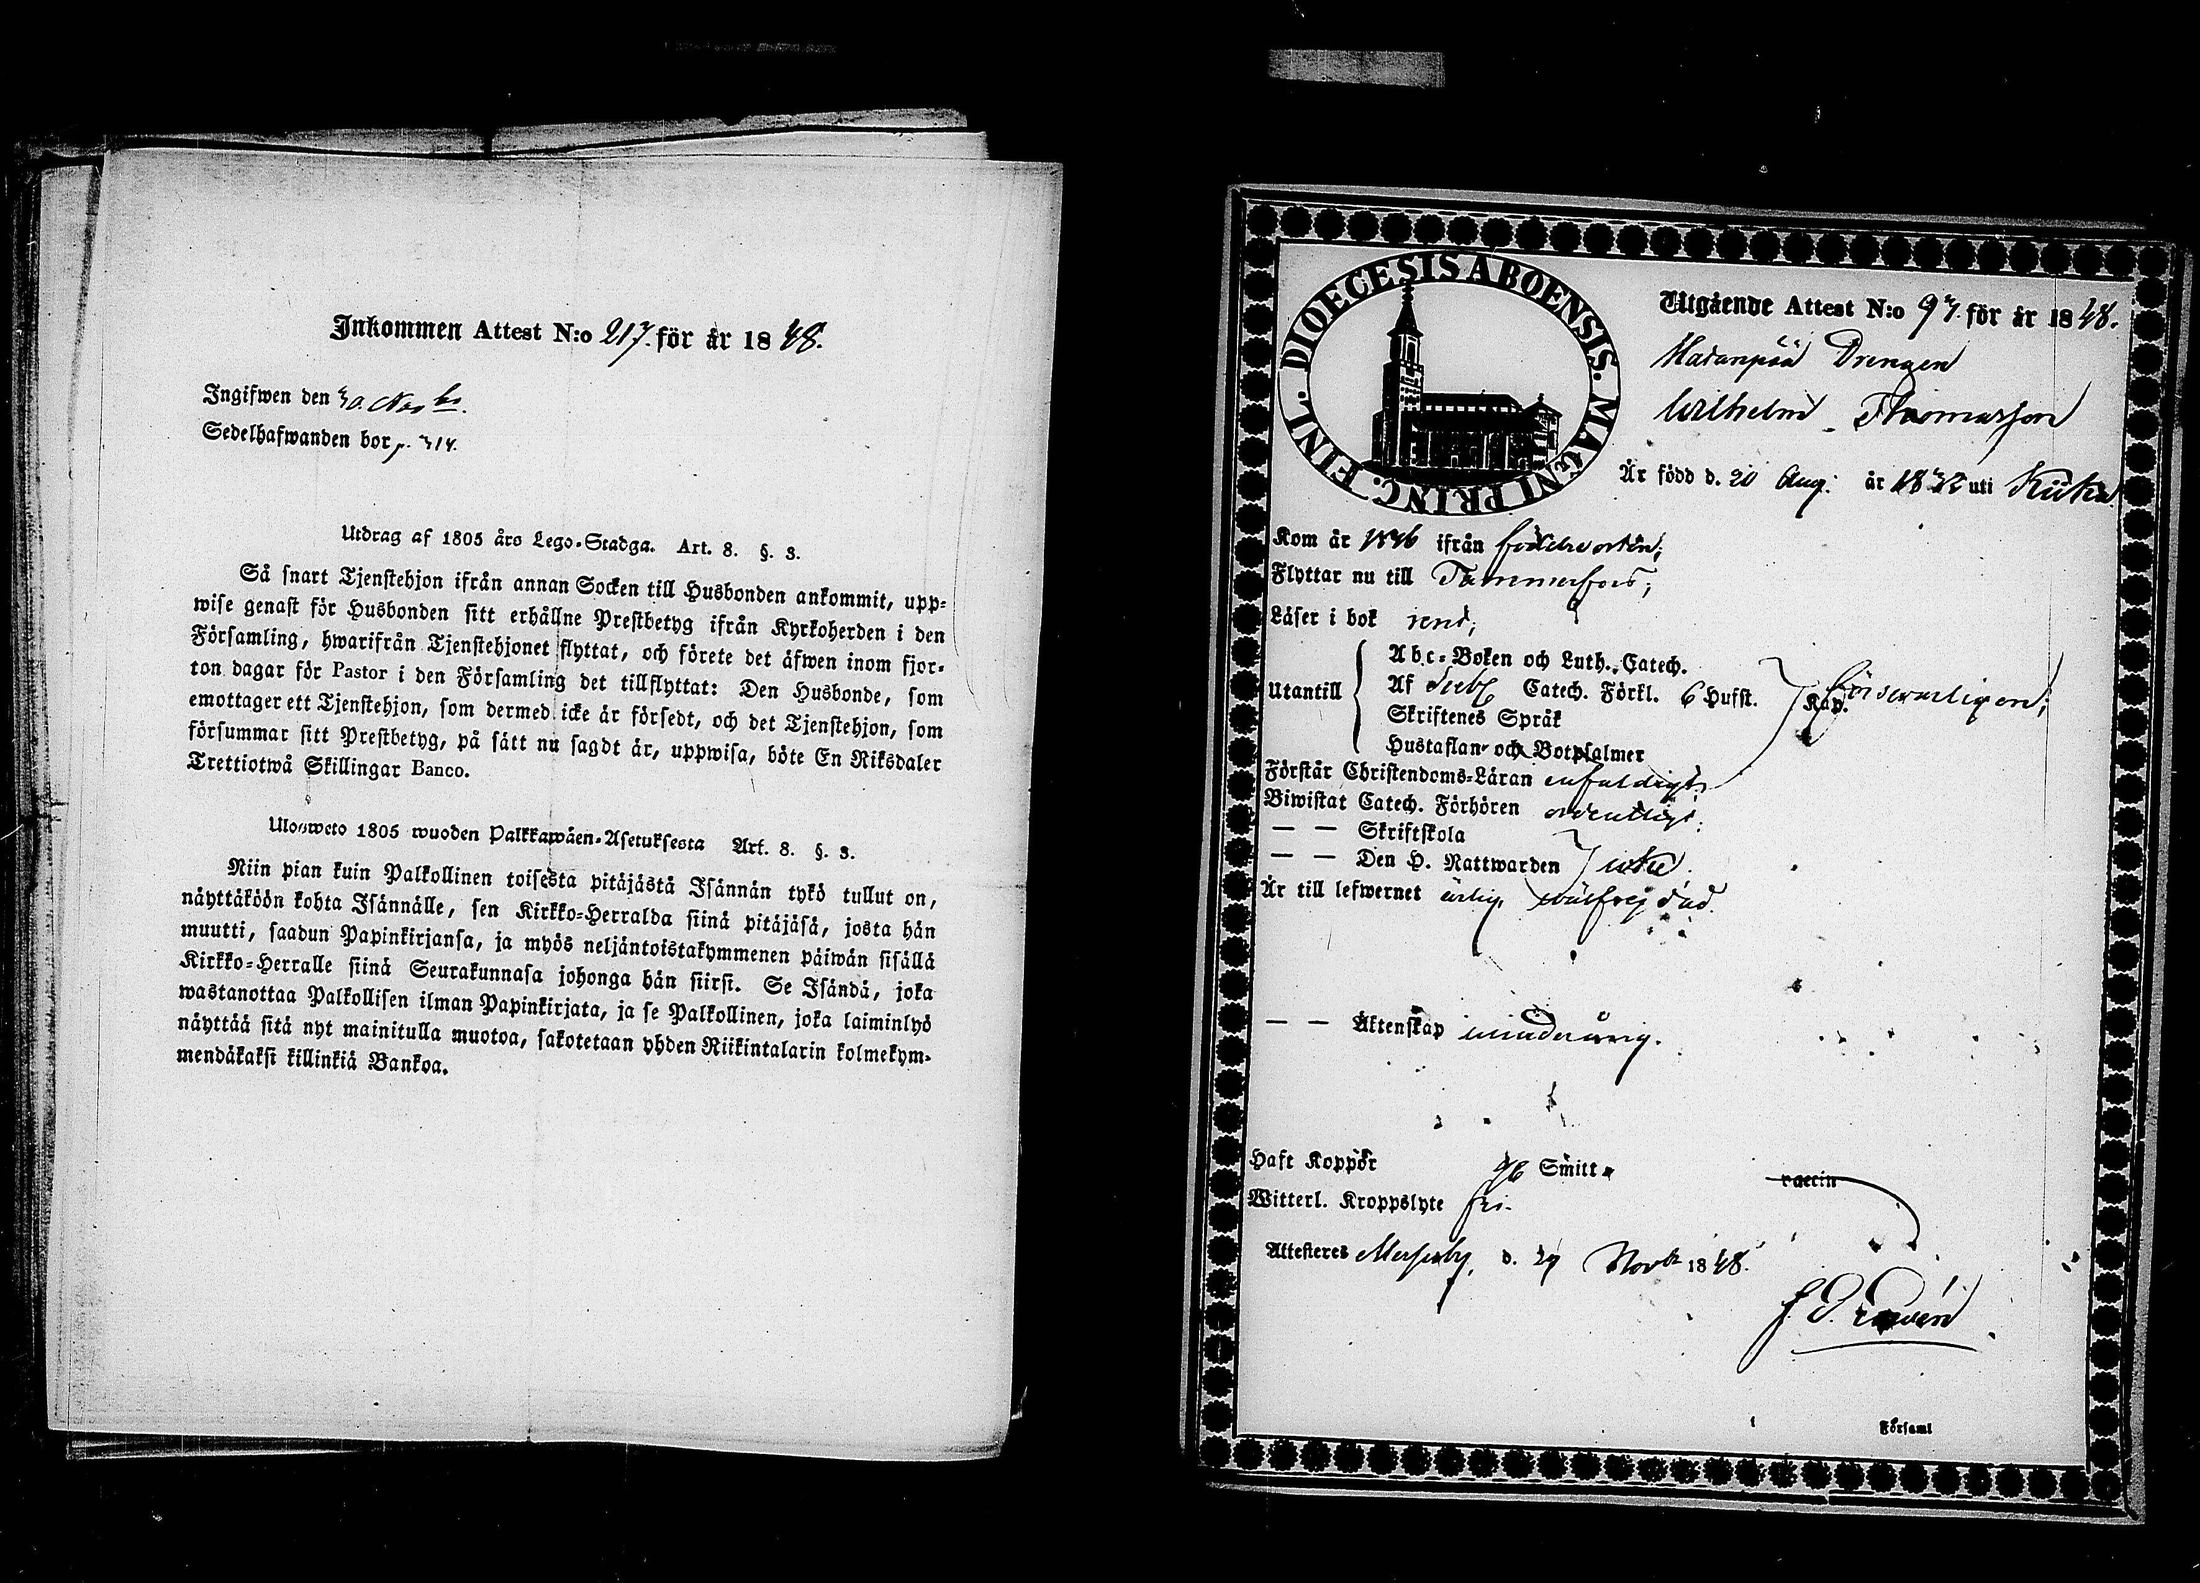 Inkommen Attest N:o 217. för år 1848.
Ingifwen den 30. Nov br.
Sedelhafwanden bor p. 314.
Utdrag af 1805 års Lego-Stadga. Art. 8. §. 3.
Så snart Tjenstehjon ifrån annan Socken till Husbonden ankommit, upp-
wise genast för Husbonden sitt erhållne Prestbetyg ifrån Kyrkoherden i den
Församling, hwarifrån Tjenstehjonet flyttat, och förete det äfwen inom fjor-
ton dagar för Pastor i den Församling det tillflyttat: Den Husbonde, som
emottager ett Tjenstehjon, som dermed icke är försedt, och det Tjenstehjon, som
försummar sitt Prestbetyg, på sätt nu sagdt är, uppwisa, böte En Riksdaler
Trettiotwå Skillingar Banco.
Ulosweto 1805 wuoden Palkkawäen-Asetuksesta Art. 8. §. 3.
Niin pian kuin Palkollinen toisesta pitäjästä Isännän tykö tullut on,
näyttäköön kohta Isännälle, sen Kirkko-Herralda siinä pitäjäsä, josta hän
muutti, saadun Papinkirjansa, ja myös neljäntoistakymmenen päiwän sisällä
Kirkko-Herralle siinä Seurakunnasa johonga hän siirsi. Se Isändä, joka
wastanottaa Palkollisen ilman Papinkirjata, ja se Palkollinen, joka laiminlyö
näyttää sitä nyt mainitulla muotoa, sakotetaan yhden Riikintalarin kolmekym-
mendäkaksi killinkiä Bankoa.
DIOECESIS ABOENSIS. MAGNI PRINC. FINL.
Utgående Attest N:o 97. för år 1848.
Drengen
Wilhelm Thomasson
Är född d. 20 Aug: år 1832 uti Kiika
Kom år 1846 ifrån födelseorten;
Flyttar nu till Tammerfors;
Läser i bok rent;
Utantill
Abc-Boken och Luth. Catech.
Af Sveb. Catech. Förkl. 6 Hufst. Kap. försvarligen;
Skriftenes Språk
Hustaflan och Botpsalmer
Förstår Christendoms-Läran enfaldigt
Biwistat Catech. Förhören ordentligt;
— — Skriftskola
— — Den H. Nattwarden icke.
Är till lefwernet ärlig, wälfrejdad.
— — Äktenskap minderårig.
Haft Koppor Smitt vaccin
Witterl. Kroppslyte fri.
Attesteres d. 29 Novbr 1848.
Församl